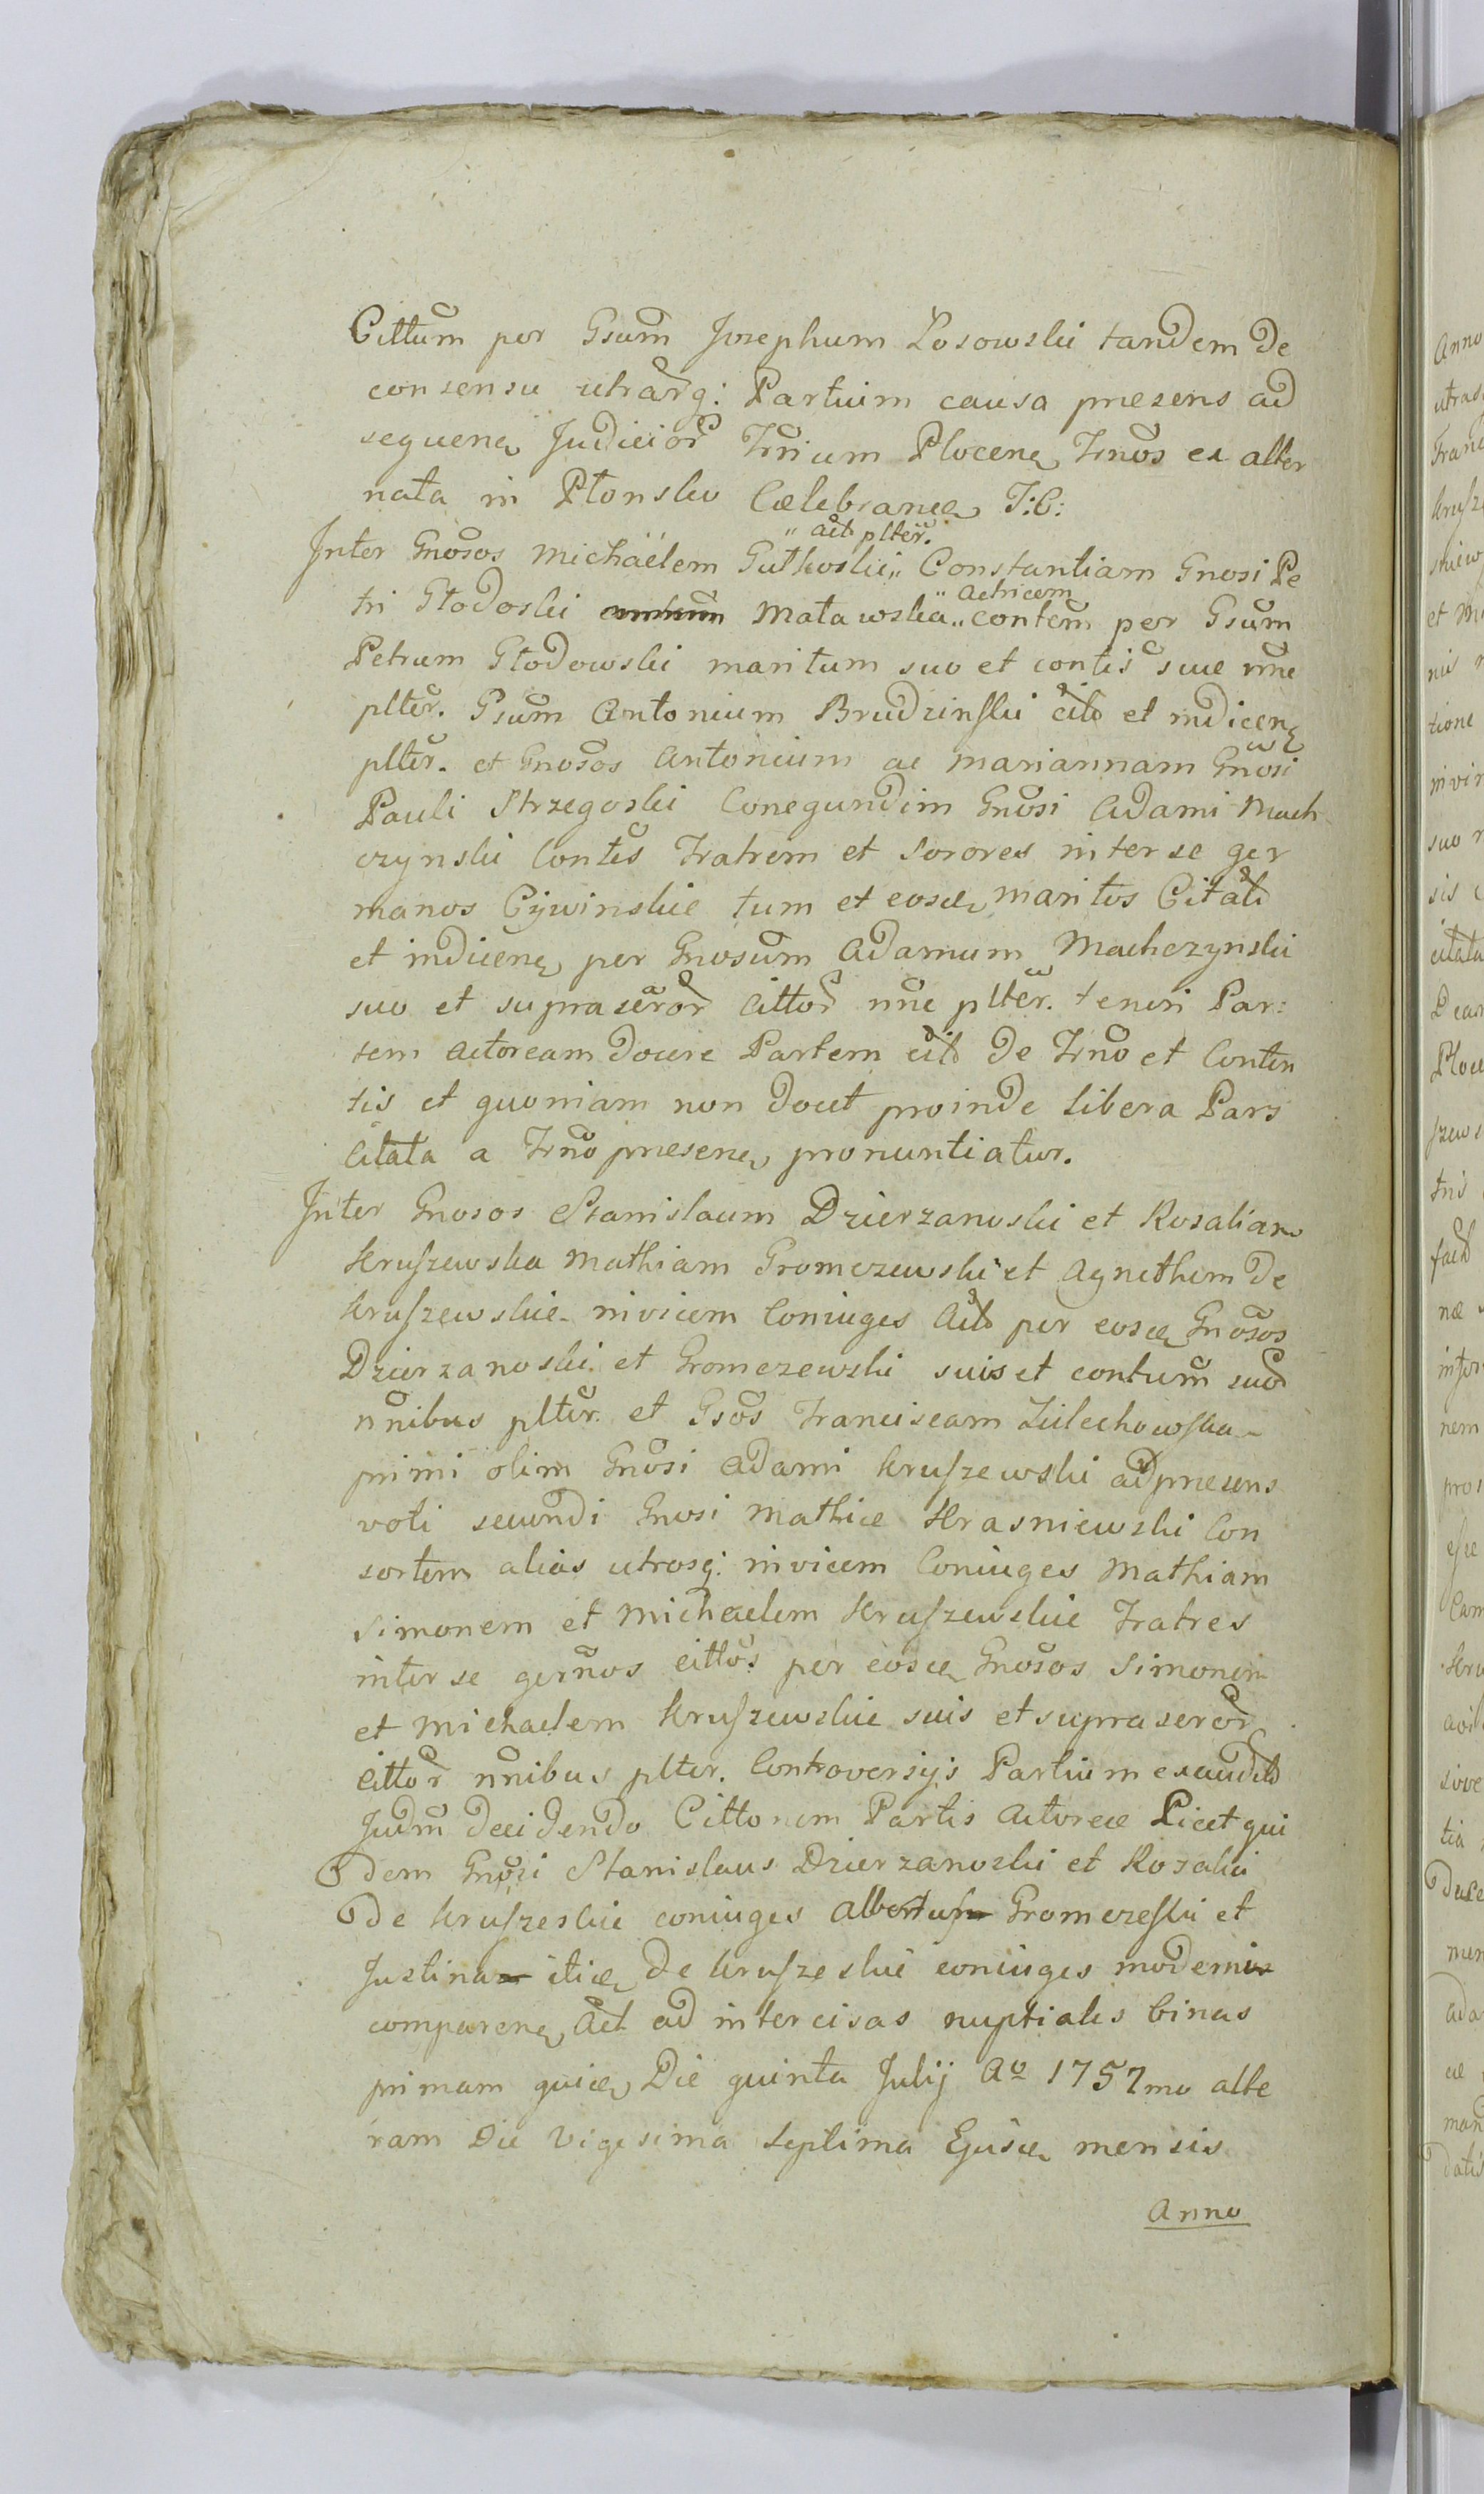 Cittum per Gsum Josephum Losowski tandem de
consensu utrarq: Partium causa praesens ad
sequenę Judicior Trnium Plocenę Trnos ex alter
nata in Płonsko Caelebranę T:C:
Inter Gnosos Michaëlem Gutkoski „ Act plter. „ Constantiam Gnosi Pe
tri Głodoski Matawska „ Actricem „ contem per Gsum
Petrum Głodowski maritum suo et contis suae nne
plter. Gsum Antonium Brudzinski cit et indicenę
plter. et Gnosos Antonium ac Mariannam Gnosi
Pauli Strzegoski Conegundim Gnosi Adami Mach
czynski Contes Fratrem et Sorores inter se ger
manos Cywinskie tum et eosdę maritos Citat
et indicenę per Gnosum Adamum Machczynski
suo et suprascror Cittor nne plter. teneri Par:
tem Actoream docere Partem cit de Trno et Conten
tis et quoniam non docet proinde libera Pars
Citata a Trno praesenę pronuntiatur.
Inter Gnosos Stanislaum Dzierzanoski et Rosaliam
Kruszewska Mathiam Gromczewski et Agnethem de
Kruszewskie invicem Coniuges Act per eosdę Gnosos
Dzierzanoski et Gromczewski suis et contum suor
nnibus plter. et Gsos Franciscam Zulechowska
primi olim Gnosi Adami Kruszewski ad praesens
voti secundi Gnosi Mathiae Krasniewski Con
sortem alias utrosq: invicem Coniuges Mathiam
Simonem et Michaelem Kruszewskie Fratres
inter se germos cittos per eosdę Gnosos Simonem
et Michaelem Kruszewskie suis et suprascror
Cittor nnibus plter. Controversijs Partium exaudit
Judm decidendo Cittonem Partis Actoreae Licet qui
dem Gnosi Stanislaus Dzierzanoski et Rosalia
de Kruszeskie coniuges Albertus Gromczeski et
Justina itidę de Kruszeskie coniuges moderni
comparenę Act ad intercisas nuptiales binas
primam quidę Die quinta Julij Ao 1757mo alte
ram Die Vigesima Septima Ejusdę mensis
Anno